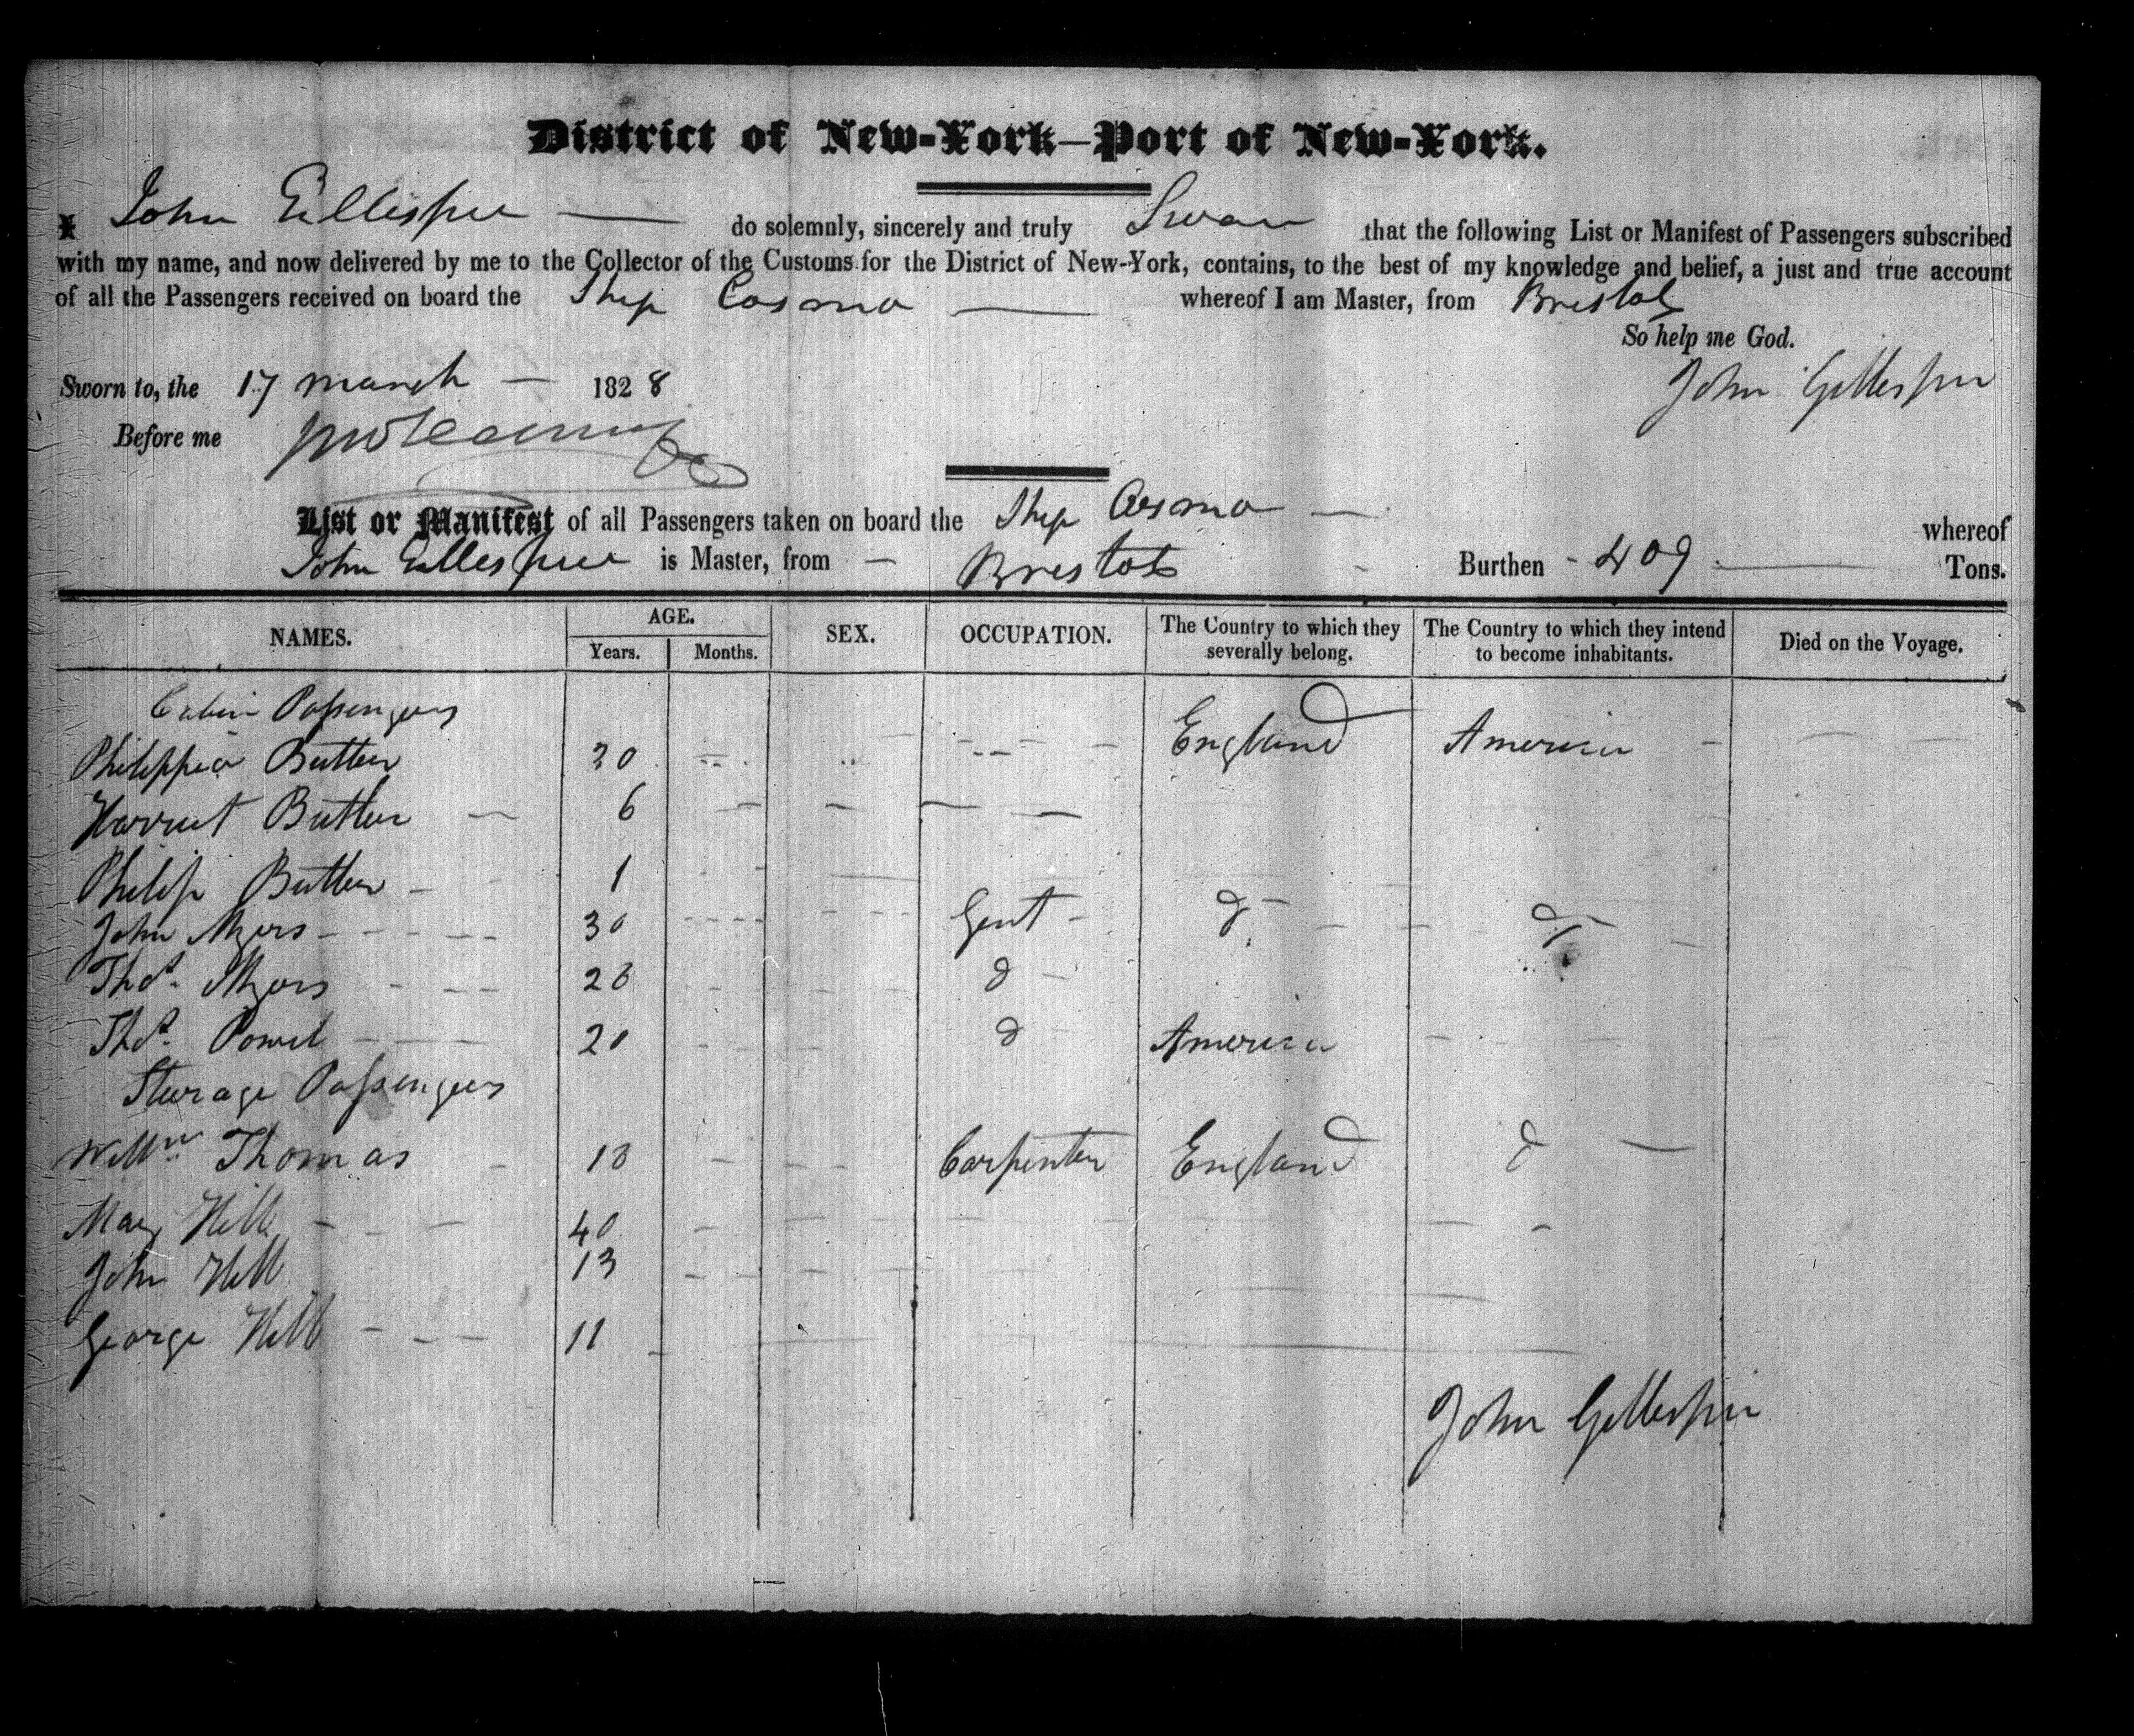 District of New-York—Port of New-York.
I John Gillespie — do solemnly, sincerely and truly Swear that the following List or Manifest of Passengers subscribed
with my name, and now delivered by me to the Collector of the Customs for the District of New-York, contains, to the best of my knowledge and belief, a just and true account
of all the Passengers received on board the Ship Cosmo — whereof I am Master, from Bristol
So help me God.
Sworn to, the 17 march — 1828 John Gillespie
Before me
List or Manifest of all Passengers taken on board the Ship Cosmo — whereof
John Gillespie is Master, from — Bristol Burthen - 409 — Tons.
NAMES. AGE. SEX. OCCUPATION. The Country to which they severally belong. The Country to which they intend to become inhabitants. Died on the Voyage.
Years. Months.
Cabin Passengers
Philippia Butler 30 England America
Harriet Butler 6
Philip Butler 1
John Myers 30 Gent do do
Thos. Myers 28 do
Thos. Powel 20 do America
Sturage Passengers
Willm. Thomas 18 Carpenter England do
Mary Hill 40
John Hill 13
George Hill 11
John Gillespie